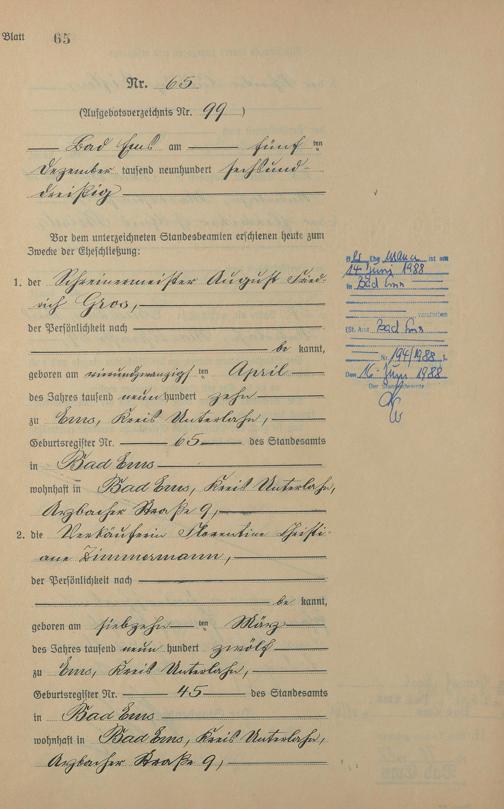 Blatt 65
Nr. 65
(Aufgebotsverzeichnis Nr. 99)
Bad Ems am fünf ten
Dezember tausend neunhundert sechsund-
dreißig
Vor dem unterzeichneten Standesbeamten erschienen heute zum
Zwecke der Eheschließung:
1. der Schreinermeister August Fried-
rich Gros,
der Persönlichkeit nach
be kannt,
geboren am vierundzwanzigs ten April
des Jahres tausend neun hundert zehn
zu Ems, Kreis Unterlahn,
Geburtsregister Nr. 65 des Standesamts
in Bad Ems
wohnhaft in Bad Ems, Kreis Unterlahn,
Arzbacher Straße 9,
2. die Verkäuferin Florentine Christi-
ane Zimmermann,
der Persönlichkeit nach
be kannt,
geboren am siebzehn ten März
des Jahres tausend neun hundert zwölf
zu Ems, Kreis Unterlahn,
Geburtsregister Nr. 45 des Standesamts
in Bad Ems
wohnhaft in Bad Ems, Kreis Unterlahn,
Arzbacher Straße 9,
Ehemann ist am
14. Juni 1988
in Bad Ems
verstorben
(St. Amt Bad Ems
Nr. 194/1988 ).
Den 16. Juni 1988
Der Standesbeamte